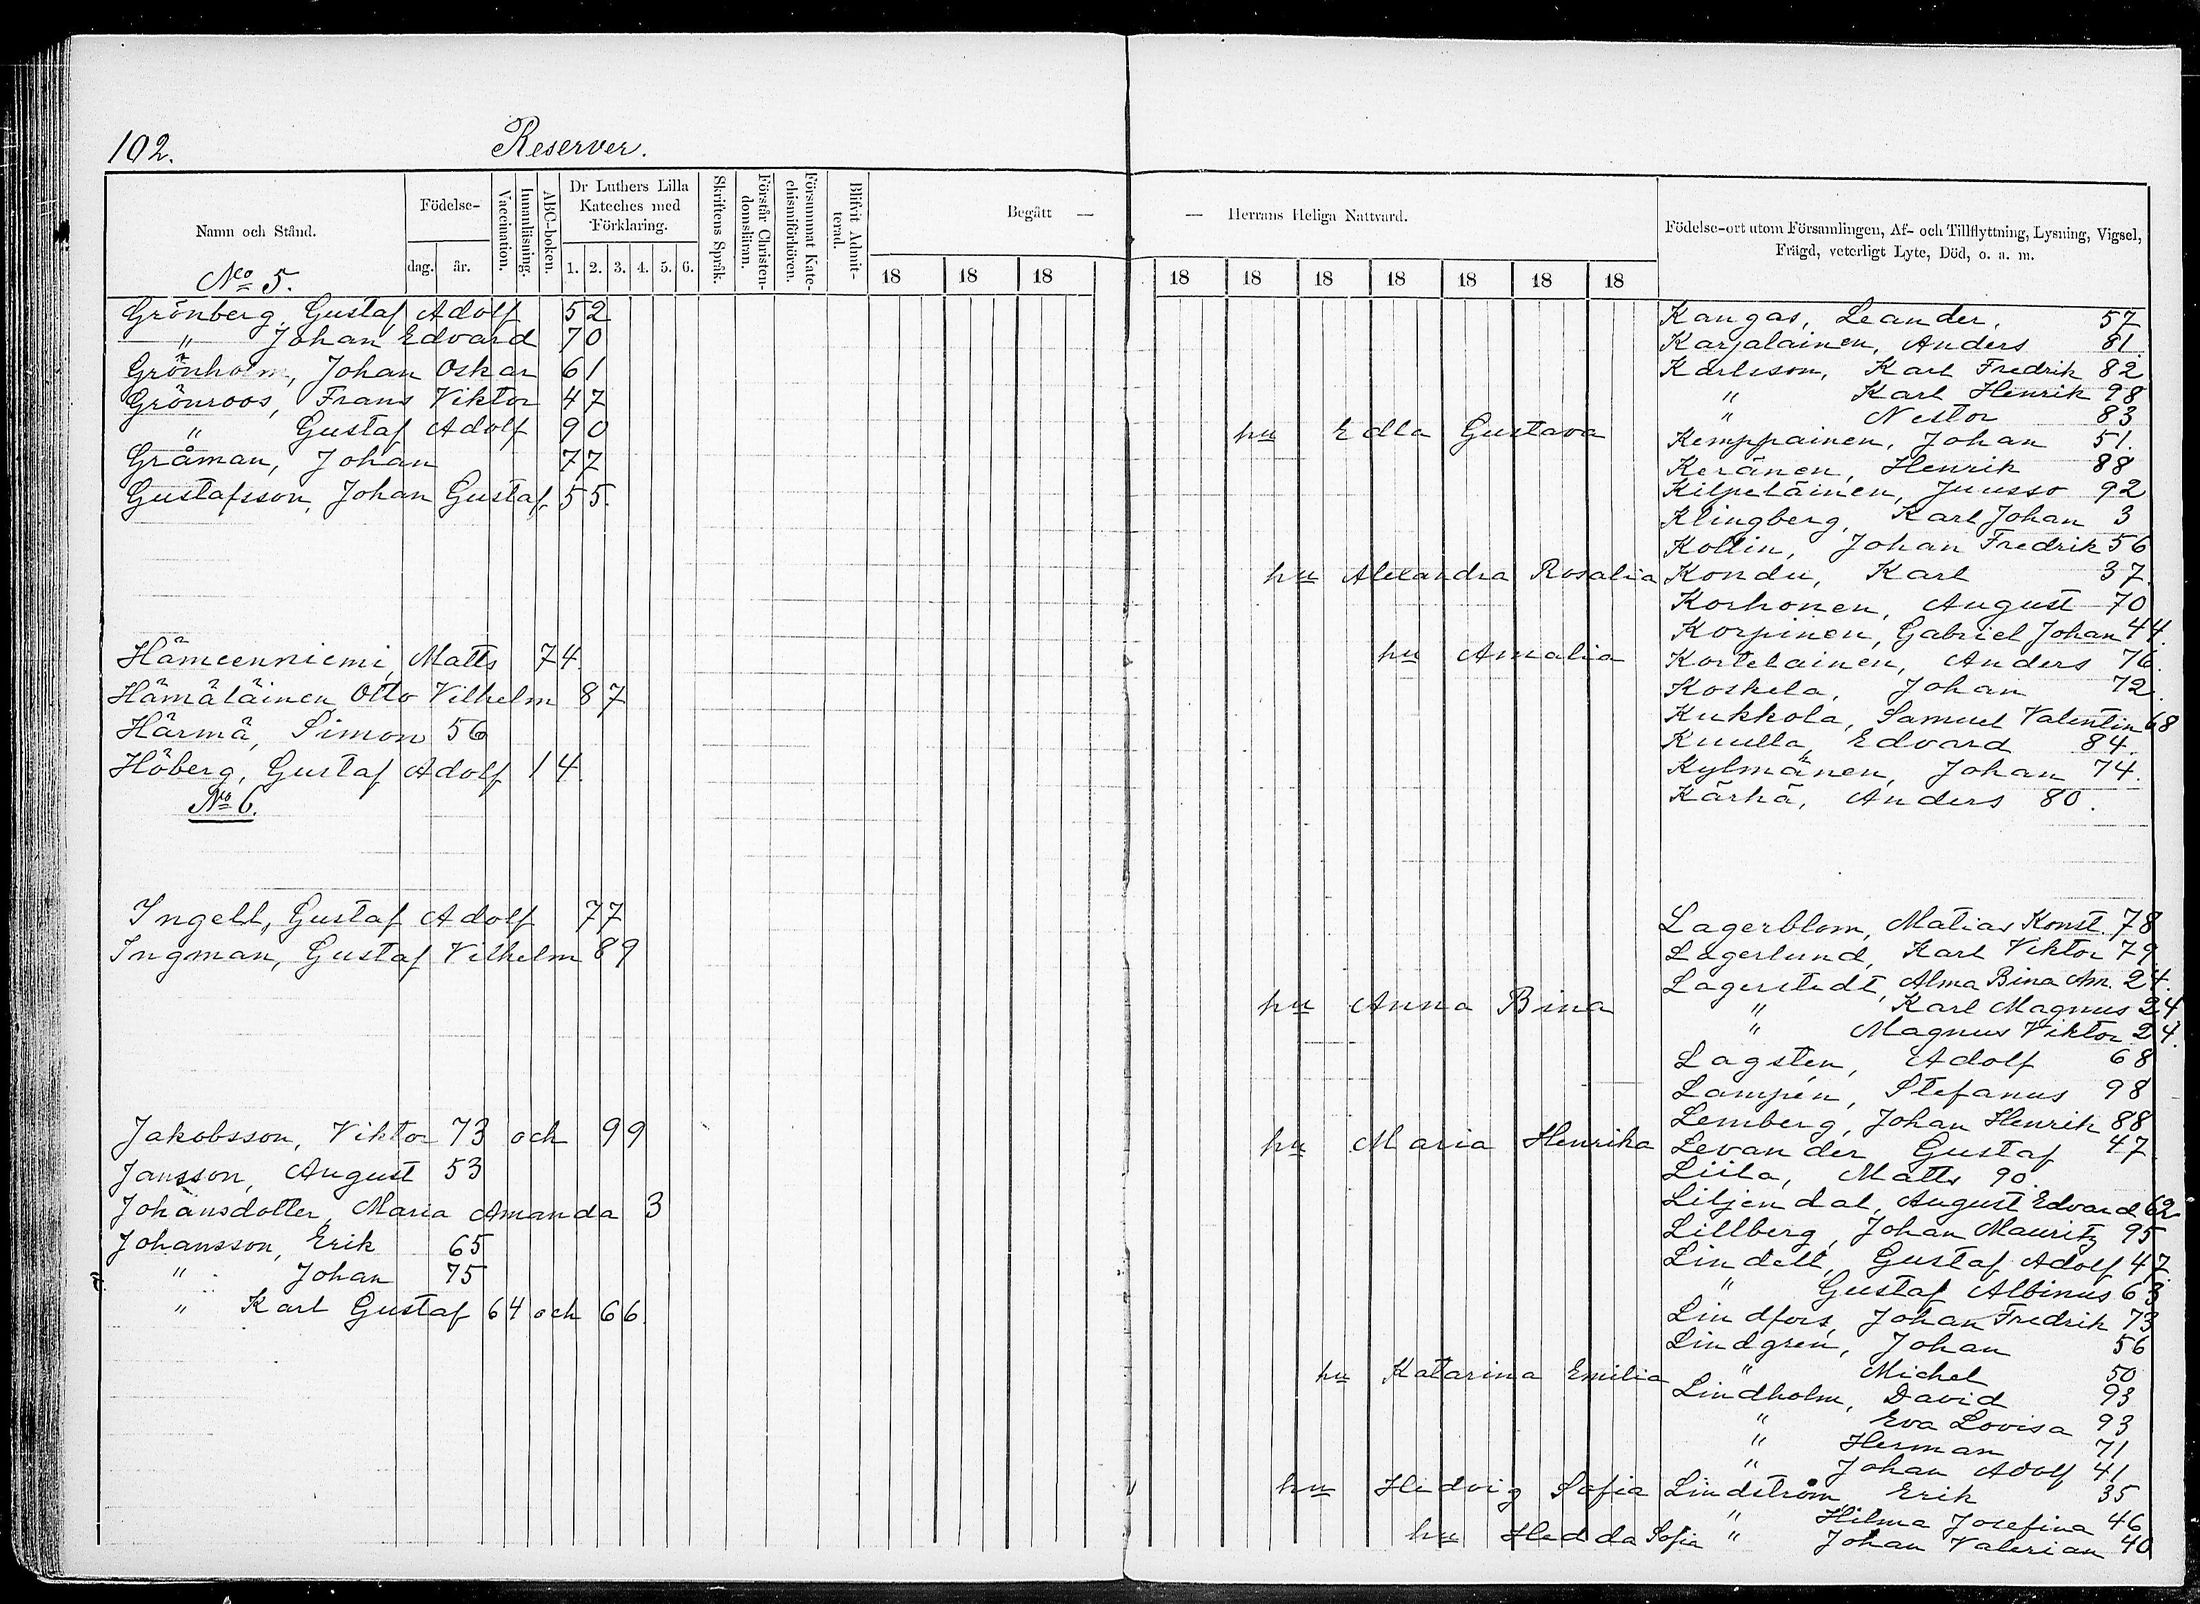 102.
Reserver.
Namn och Stånd.
Födelse-
dag.
år.
Vaccination.
Innanläsning.
ABC-boken.
Dr Luthers Lilla
Kateches med
Förklaring.
1. 2. 3. 4. 5. 6.
Skriftens Språk.
Förstår Christen-
domsläran.
Försummat Kate-
chismiförhören.
Blifvit Admit-
terad.
Begått —
18 18 18
No 5.
Grönberg, Gustaf Adolf 52
" Johan Edvard 70
Grönholm, Johan Oskar 61
Grönroos, Frans Viktor 47
" Gustaf Adolf 90
Gråman, Johan 77
Gustafsson, Johan Gustaf, 55.
Hämeenniemi, Matts 74
Hämäläinen Otto Vilhelm 87
Härmä, Simon 56
Höberg, Gustaf Adolf 14.
No 6.
Ingell, Gustaf Adolf 77
Ingman, Gustaf Vilhelm 89
Jakobsson, Viktor 73 och 99
Jansson, August 53
Johansdotter, Maria Amanda 3
Johansson, Erik 65
" Johan 75
" Karl Gustaf 64 och 66.
— Herrans Heliga Nattvard.
18 18 18 18 18 18 18
Födelse-ort utom Församlingen, Af- och Tillflyttning, Lysning, Vigsel,
Frägd, veterligt Lyte, Död, o. a. m.
Kangas, Leander, 57
Karjalainen, Anders 81.
Karlsson, Karl Fredrik 82
" Karl Henrik 98
" Nestor 83
hu Edla Gustava Kemppainen, Johan 51.
Keränen, Henrik 88
Kilpeläinen, Juusso 92
Klingberg, Karl Johan 3
Kollin, Johan Fredrik 56
hu Alexandra Rosalia Kondu, Karl 37.
Korhonen, August 70
Korpinen, Gabriel Johan 44.
hu Amalia Kortelainen, Anders 76.
Koskela, Johan 72.
Kukkola, Samuel Valentin 68
Kuulla, Edvard 84.
Kylmänen, Johan 74.
Kärhä, Anders 80.
Lagerblom, Matias Konst. 78
Lagerlund, Karl Viktor 79.
Lagerstedt, Alma Bina Am. 24.
hu Anna Bina " Karl Magnus 24
" Magnus Viktor 24.
Lagsten, Adolf 68
Lampén, Stefanus 98
Lemberg, Johan Henrik 88
hu Maria Henrika Levander Gustaf 47
Liila, Matts 90.
Liljendal, August Edvard 62
Lillberg, Johan Mauritz 95
Lindell, Gustaf Adolf 47.
" Gustaf Albinus 63
Lindfors, Johan Fredrik 73
Lindgrén, Johan 56
hu Katarina Emilia " Michel 50
Lindholm, David 93
" Eva Lovisa 93
" Herman 71
" Johan Adolf 41
hu Hedvig Sofia Lindström Erik 35
" Hilma Josefina 46
hu Hedda Sofia " Johan Valerian 40